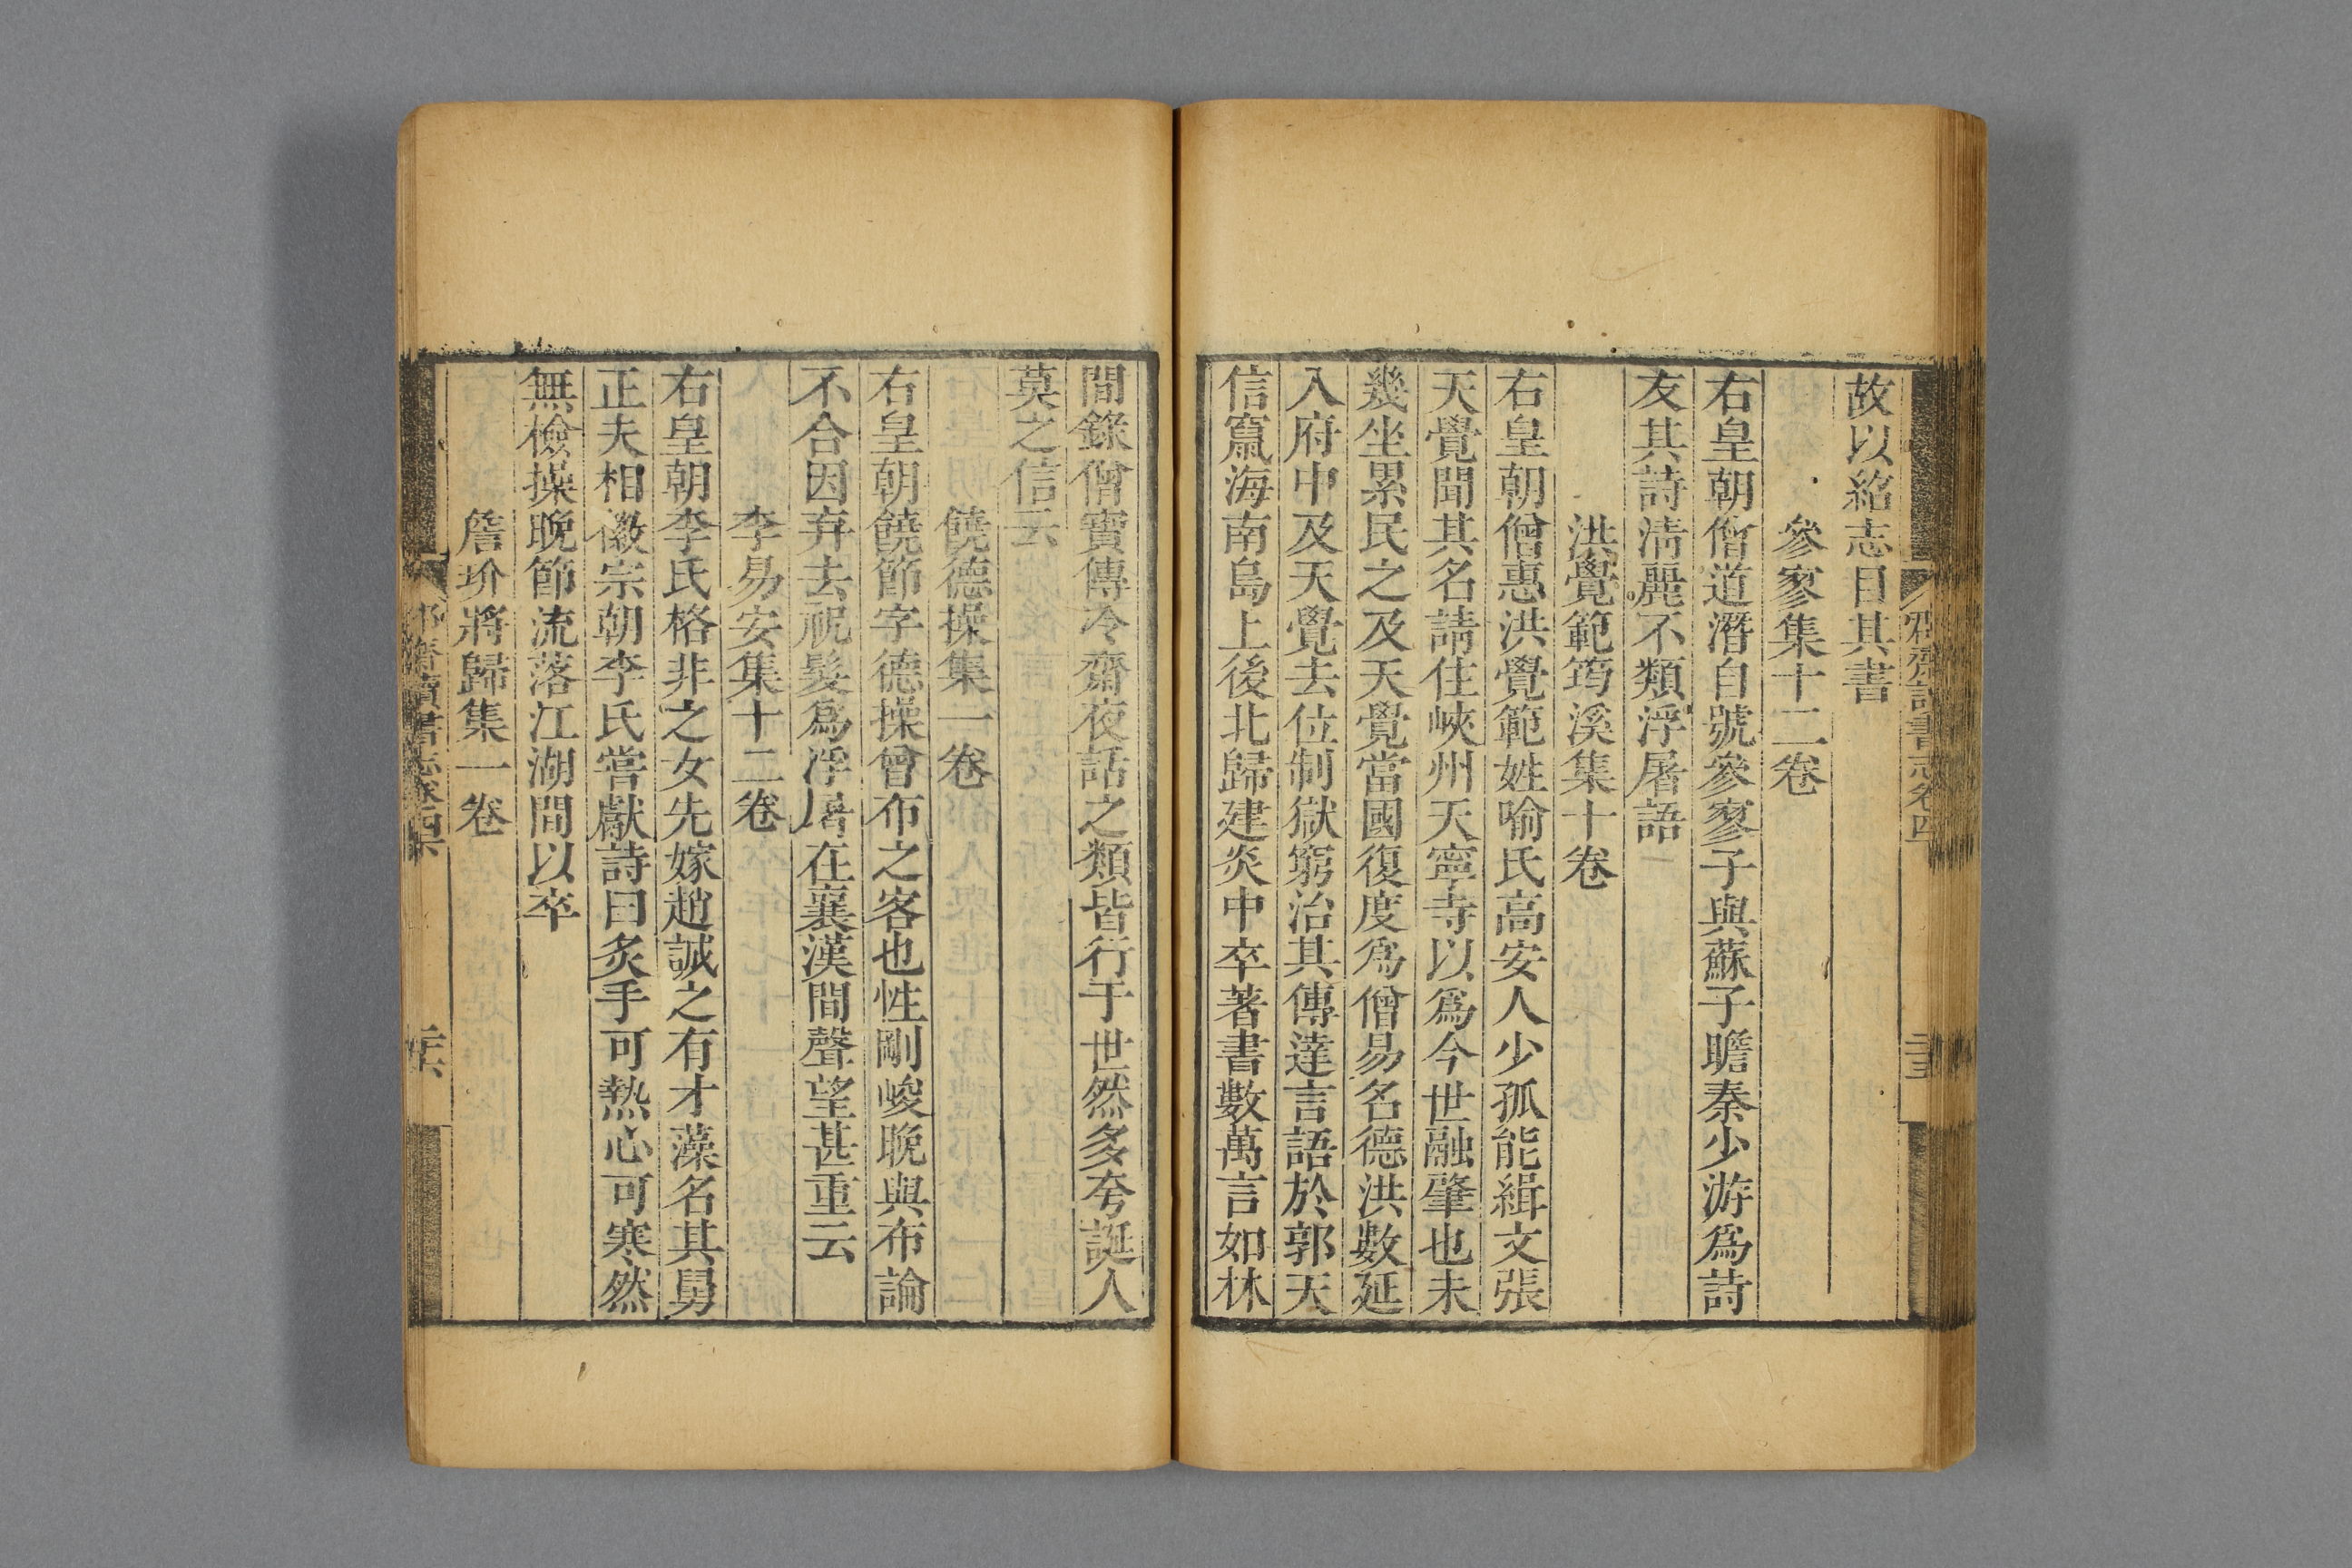 故以紹志目其書
參寥集十二卷
右皇朝僧道潛自號參寥子與蘇子瞻秦少游爲詩
友其詩清麗不類浮屠語
洪覺範筠溪集十卷
右皇朝僧惠洪覺範姓喻氏高安人少孤能緝文張
天覺聞其名請住峽州天寧寺以爲今世融肇也未
幾坐累民之及天覺當國復度爲僧易名德洪數延
入府中及天覺去位制獄窮治其傳達言語於郭天
信竄海南島上後北歸建炎中卒著書數萬言如林
間錄僧寶傳冷齋夜話之類皆行于世然多夸誕人
莫之信云
饒德操集一卷
右皇朝饒節字德操曾布之客也性剛峻晚與布論
不合因弃去祝髮爲浮屠在襄漢間聲望甚重云
李易安集十二卷
右皇朝李氏格非之女先嫁趙誠之有才藻名其舅
正夫相徽宗朝李氏嘗獻詩曰炙手可熱心可寒然
無檢操晚節流落江湖間以卒
詹玠將歸集一卷